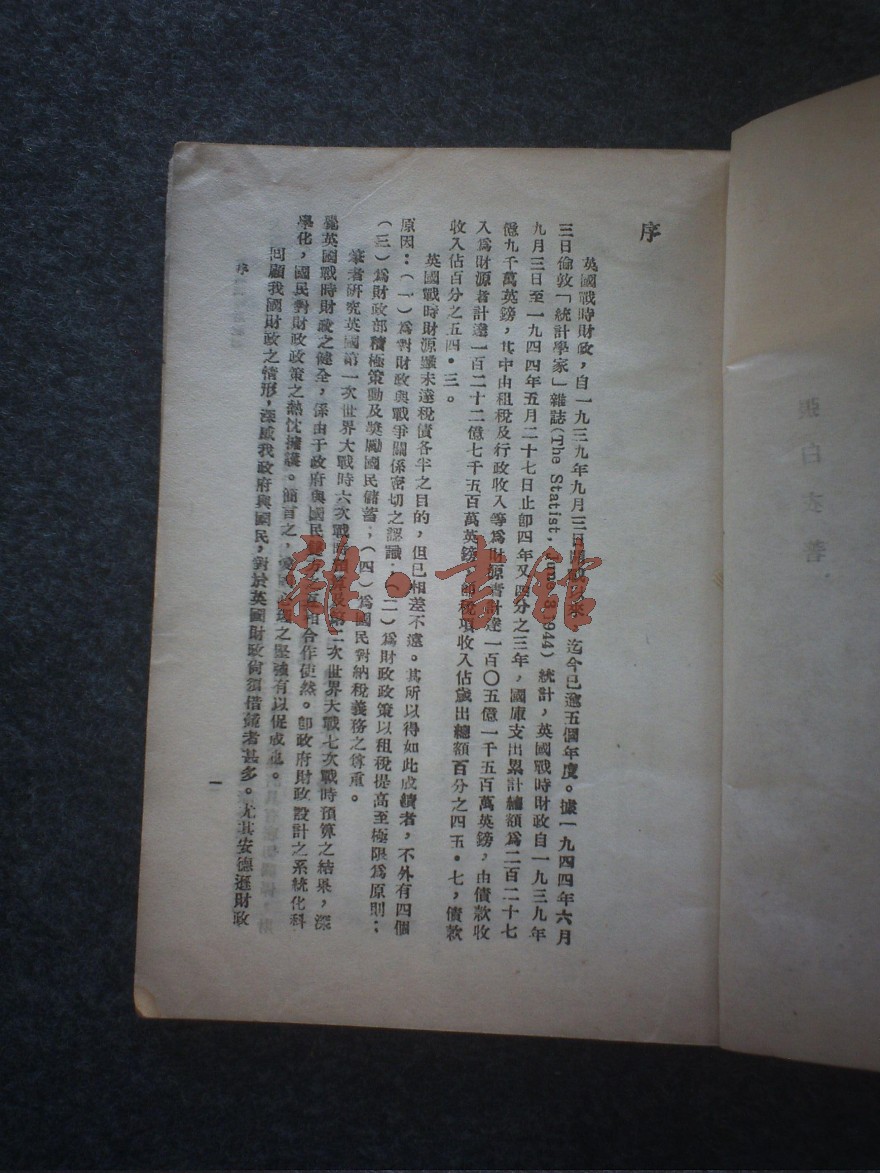 序
英國戰時財政，自一九三九年九月三日開戰以來，迄今已逾五個年度。據一九四四年六月
三日倫敦「統計學家」雜誌(The Statist, June 3, 1944) 統計，英國戰時財政自一九三九年
九月三日至一九四四年五月二十七日止卽四年又四分之三年，國庫支出累計總額爲二百二十七
億九千萬英鎊，其中由租稅及行政收入等爲財源者計達一百〇五億一千五百萬英鎊，由債款收
入爲財源者計達一百二十二億七千五百萬英鎊，卽稅項收入佔歲出總額百分之四五・七，債款
收入佔百分之五四・三。
英國戰時財源雖未達稅債各半之目的，但已相差不遠。其所以得如此成績者，不外有四個
原因：（一）爲對財政與戰爭關係密切之認識；（二）爲財政政策以租稅提高至極限爲原則；
（三）爲財政部積極策動及獎勵國民儲蓄；（四）爲國民對納稅義務之尊重。
筆者研究英國第一次世界大戰時六次戰時預算及第二次世界大戰七次戰時預算之結果，深
覺英國戰時財政之健全，係由于政府與國民雙方互相合作使然。卽政府財政設計之系統化科
學化，國民對財政政策之熱忱擁護。簡言之，之堅強有以促成也。
回顧我國財政之情形，深感我政府與國民，對於英國財政尙須借鏡者甚多。尤其安德遜財政
序
一
白
著
雜・書館